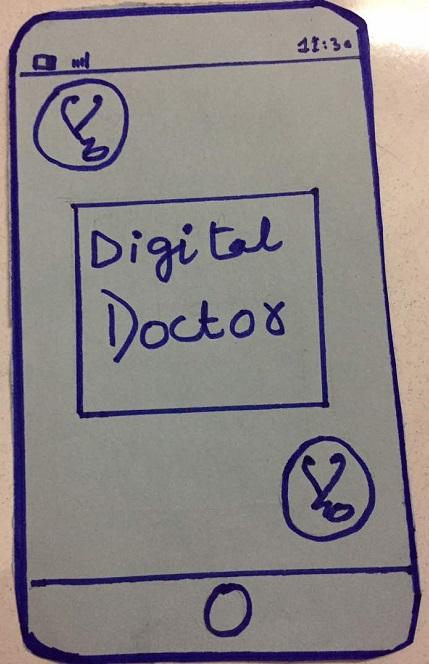 11:30
Digital
Doctor